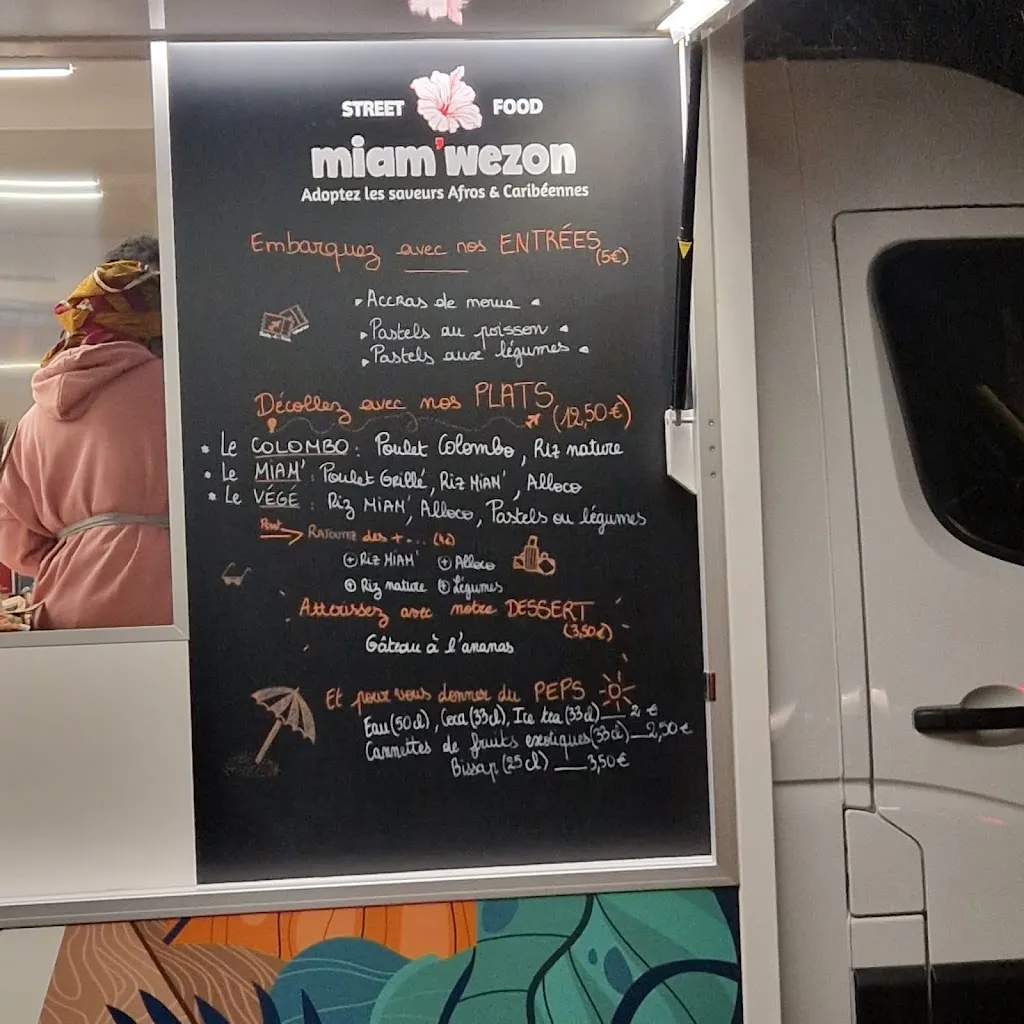 STREET FOOD
miam'wezon
Adoptez les saveurs Afros & Caribéennes
Embarquez avec nos ENTRÉES (5€)
Accras de morue
Pastels au poisson
Pastels aux légumes
Décollez avec nos PLATS (12,50€)
* Le COLOMBO : Poulet Colombo, Riz nature
* Le MIAM' : Poulet Grillé, Riz MIAM', Alloco
* Le VÉGÉ : Riz MIAM', Alloco, Pastels ou légumes
RAJOUTEZ des +...
+ Riz MIAM' + Alloco
+ Riz nature + Légumes
Atterrissez avec notre DESSERT
(3,50€)
Gâteau à l'ananas
Et pour vous donner du PEPS
Eau (50cl), Coca (33cl), Ice tea (33cl) __ 2 €
Cannettes de fruits exotiques (33cl) __ 2,50€
Bissap (25cl) __ 3,50€